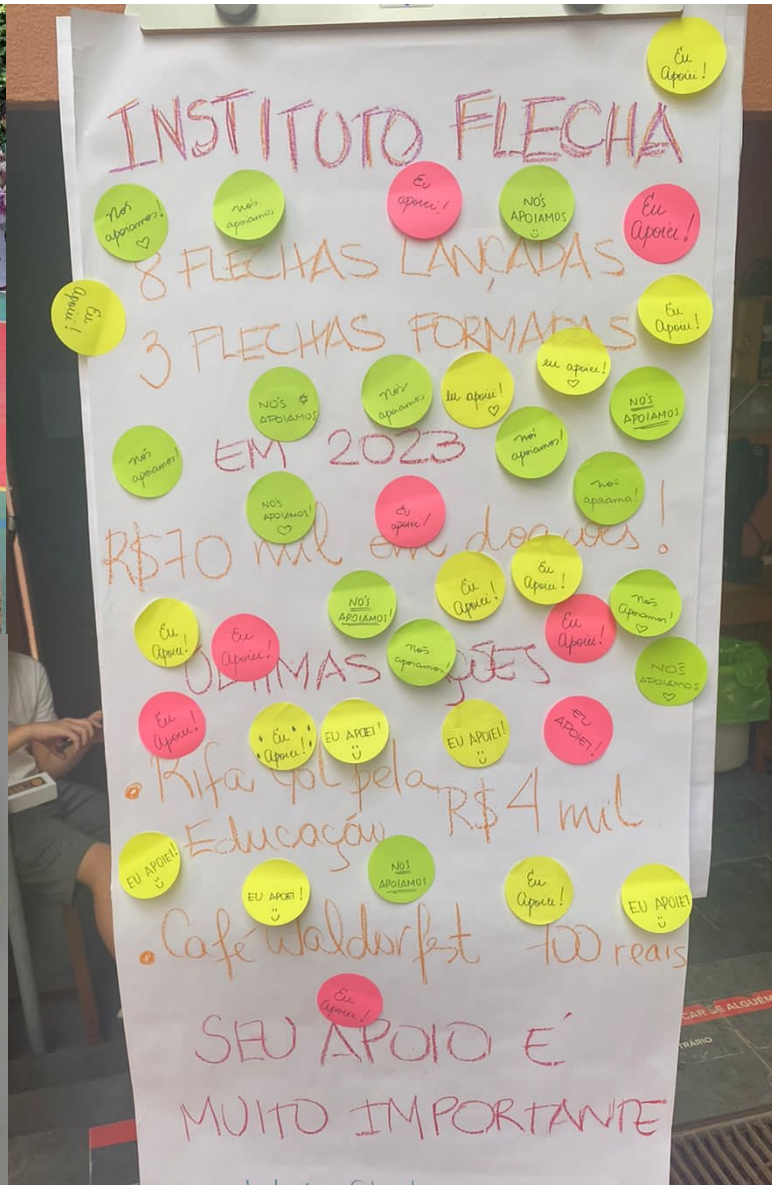 Eu
Apoiei!
INSTITUTO FLECHA
Nós
apoiamos!
nós
apoiamos
Eu
apoiei!
NÓS
APOIAMOS
Eu
Apoiei!
8 FLECHAS LANÇADAS
Eu
Apoiei!
Eu
Apoiei!
3 FLECHAS FORMADAS
eu apoiei!
NÓS
APOIAMOS
nós
apoiamos!
eu apoiei!
NÓS
APOIAMOS
nós
apoiamos!
EM 2023
nós
apoiamos!
nós
NÓS
APOIAMOS!
Eu
apoiei!
R$70 mil em doações!
Eu
Apoiei!
Eu
Apoiei!
Eu
Apoiei!
Eu
Apoiei!
NÓS
APOIAMOS!
nós
apoiamos!
Eu
Apoiei!
Nós
Apoiamos!
ÚLTIMAS AÇÕES
NÓS
APOIAMOS
Eu
Apoiei!
Eu
Apoiei!
EU APOIEI!
EU APOIEI!
EU
APOIEI!
. Rifa Gol pela
Educação R$ 4 mil
EU APOIEI!
EU APOIEI!
NÓS
APOIAMOS
Eu
Apoiei!
EU APOIEI
. Café Waldorfest 700 reais
Eu
Apoiei!
SEU APOIO É
MUITO IMPORTANTE
CAR SE ALGUÉM
TRÁRIO